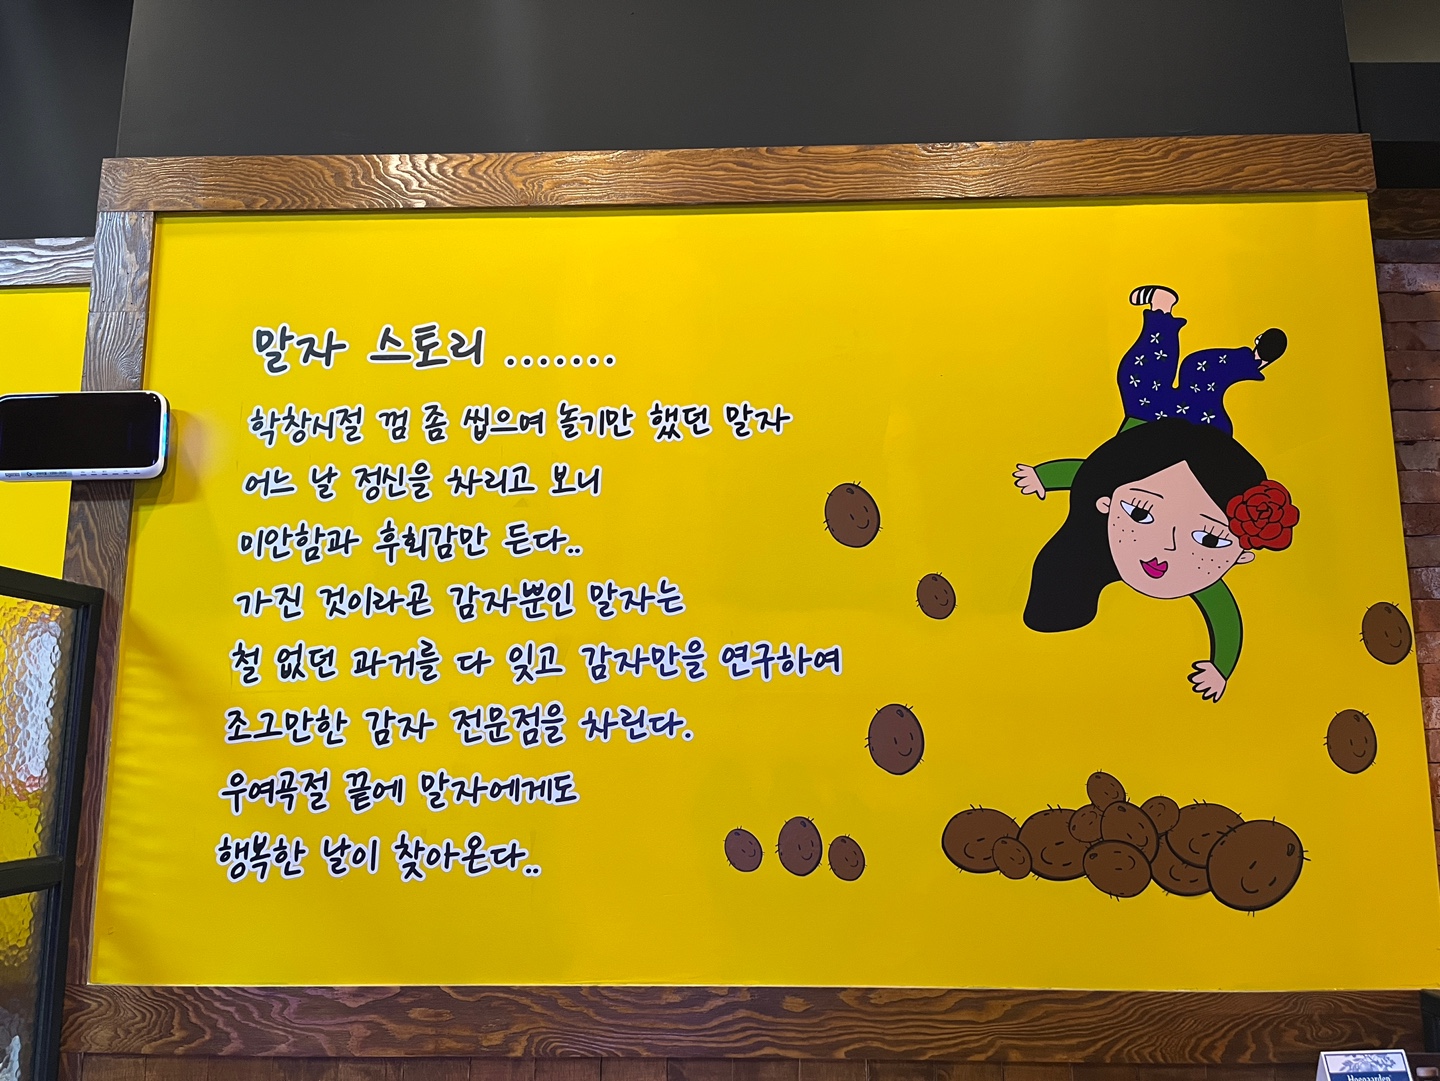 말자 스토리 .......
학창시절 껌 좀 씹으며 놀기만 했던 말자
어느 날 정신을 차리고 보니
미안함과 후회감만 든다..
가진 것이라곤 감자뿐인 말자는
철 없던 과거를 다 잊고 감자만을 연구하여
조그만한 감자 전문점을 차린다.
우여곡절 끝에 말자에게도
행복한 날이 찾아온다..
Hoegaarden